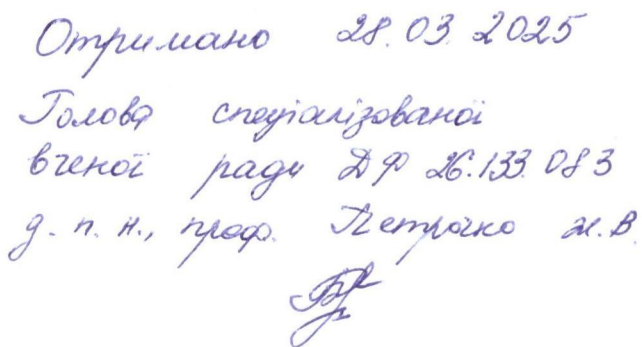 Отримано 28.03.2025
Голова спеціалізованої
вченої ради ДФ 26.133.083
д. п. н., проф. Петрочко Ж.В.